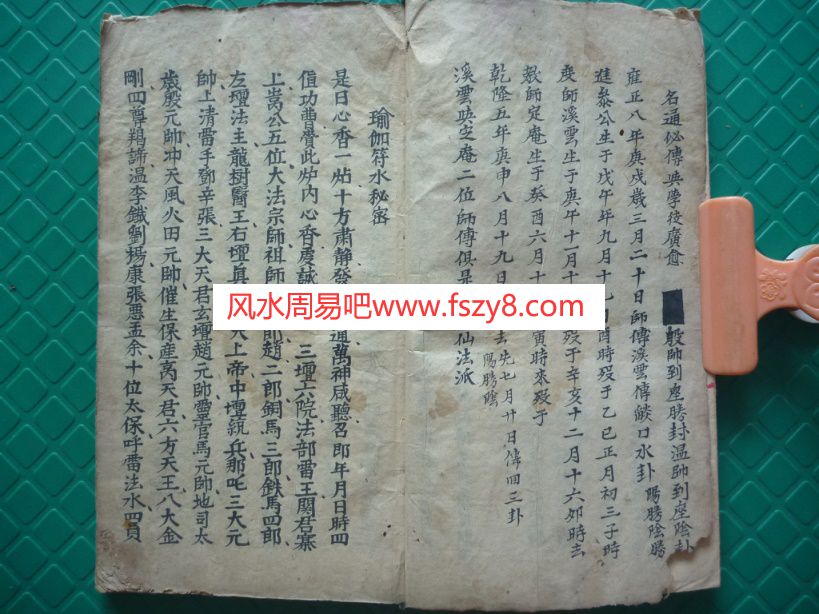 名通必傳與學後廣愈 殷帥到座勝封溫帥到座陰卦
雍正八年庚戌歲三月二十日師傳溪雲傳 口水卦 陽勝陰勝
進泰公生于戊午年九月十 酉時歿于乙巳正月初三子時
度師溪雲生于庚午十一月十 歿于辛亥十二月十六夘時去
教師定庵生于癸酉六月十 寅時來歿于
乾隆五年庚申八月十九日 去先七月廿日傳回三卦
陽勝陰
溪雲與定庵二位師傳俱是 仙法派
瑜伽符水秘密
是日心香一炉十方肅静發 通萬神咸聽召即年月日時四
值功曹賫此炉内心香虔誠 三壇六院法部雷王閭君寨
上嵩公五位大法宗師祖師 郎趙二郎銅馬三郎鉄馬四郎
左壇法主龍樹醫王右壇真 天上帝中壇統兵那吒三大元
帥上清雷手鄧辛張三大天君玄壇趙元帥靈官馬元帥地司太
歲殷元帥冲天風火田元帥催生保産高天君六方天王八大金
剛四尊羯諦温李鐵劉楊康張恶孟余十位太保呼雷法水四員
风水周易吧www.fszy8.com